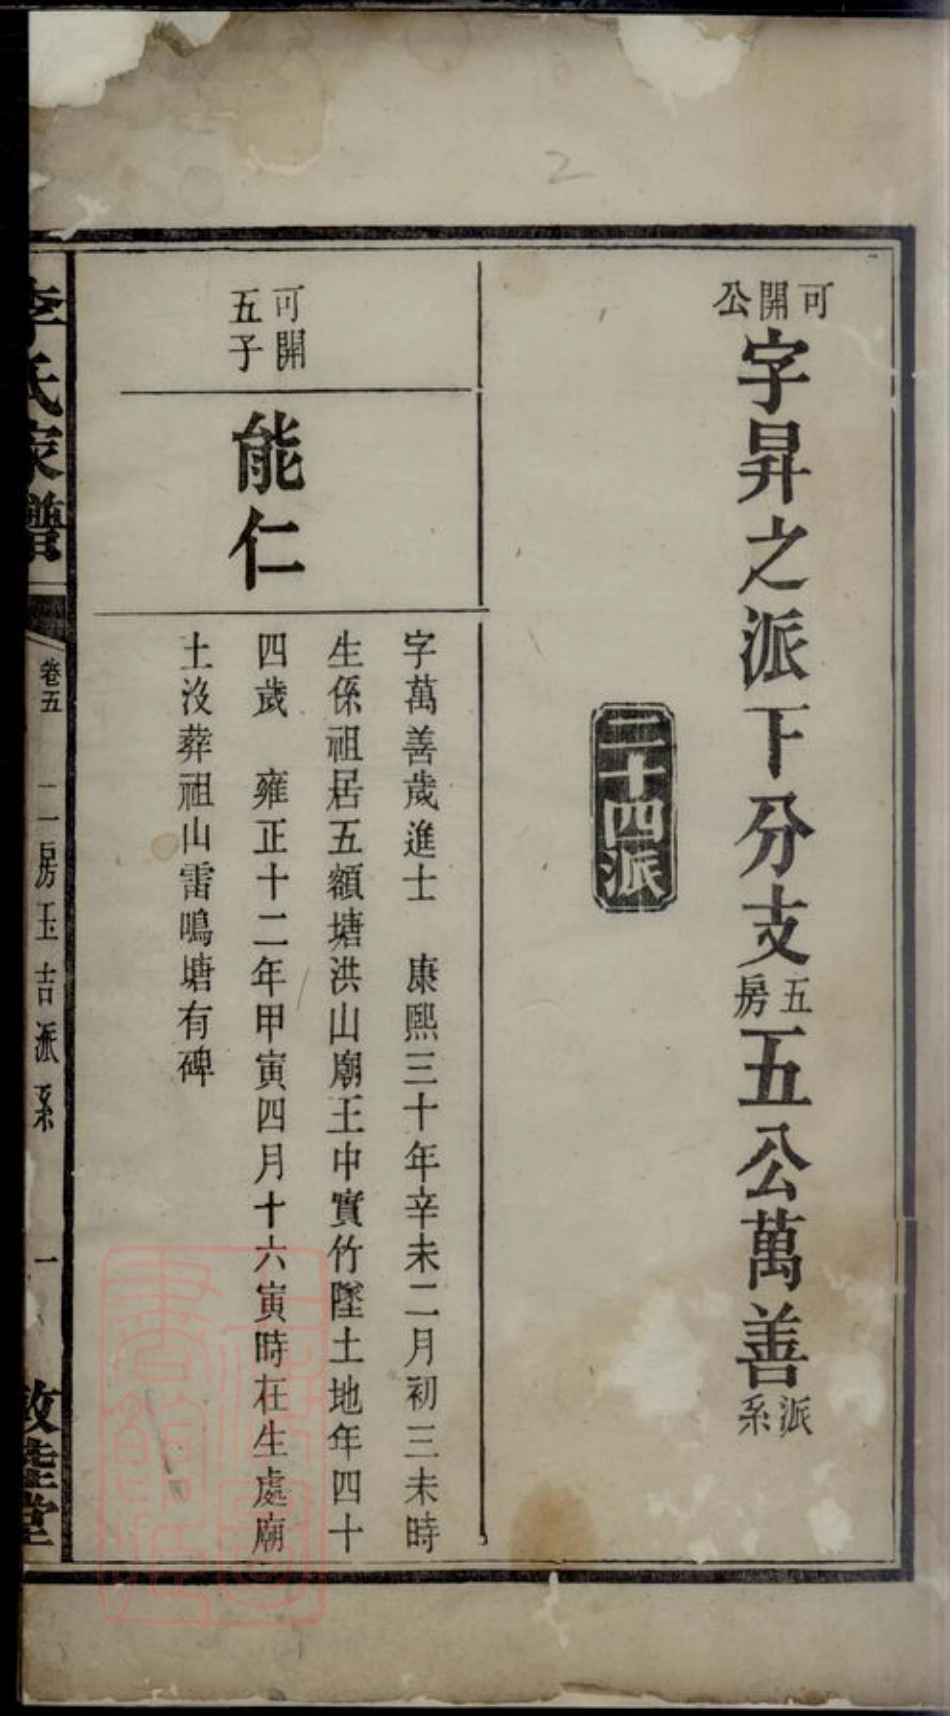 可開公字昇之派下分支五房五公萬善派系
二十四派
可開
五子
能仁
字萬善歲進士 康熙三十年辛未二月初三未時
生係祖居五額塘洪山廟王中實竹墜土地年四十
四歲 雍正十二年甲寅四月十六寅時在生處廟
土沒葬祖山雷鳴塘有碑
李氏家譜
卷五
二房玉吉派系
一
敦睦堂
2